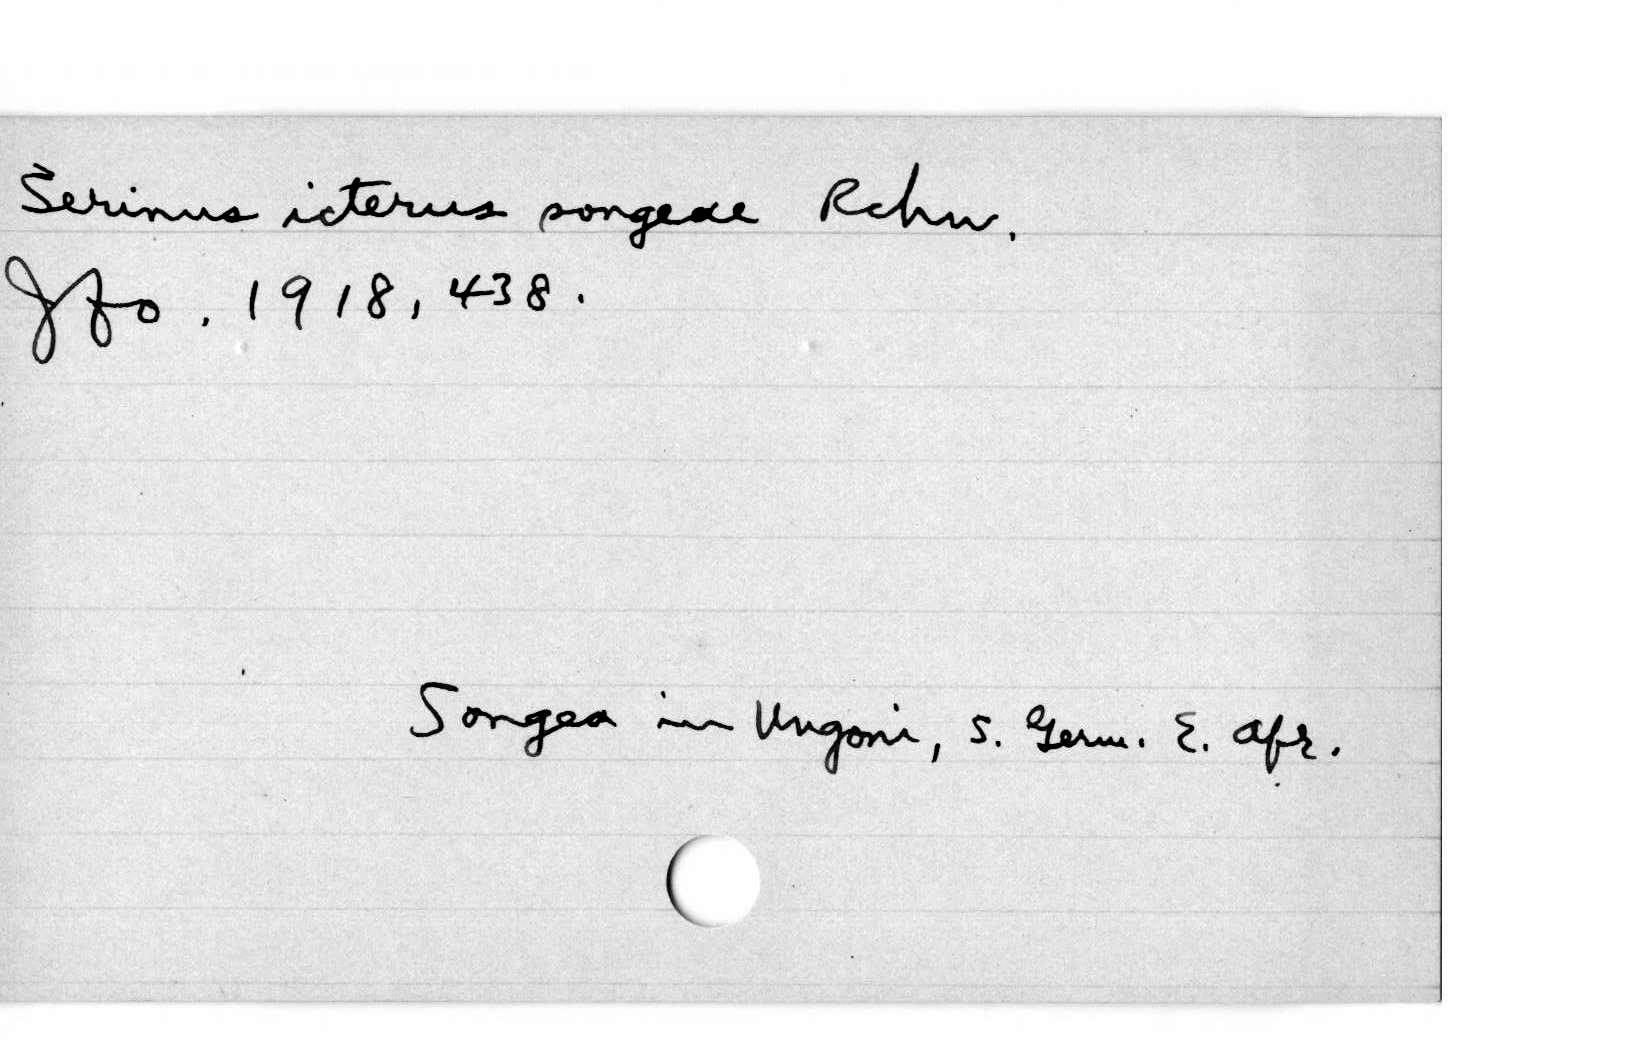 Serinus icterus songeae Rchw.
Jfo. 1918, 438.
Songea in Ungoni, S. Germ. E. Afr.